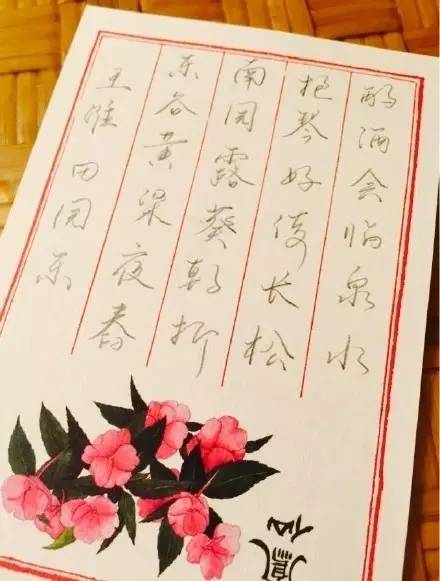 酌酒会临泉水
抱琴好倚长松
南园露葵朝折
东谷黄粱夜舂
王维 田园乐
鳳仙